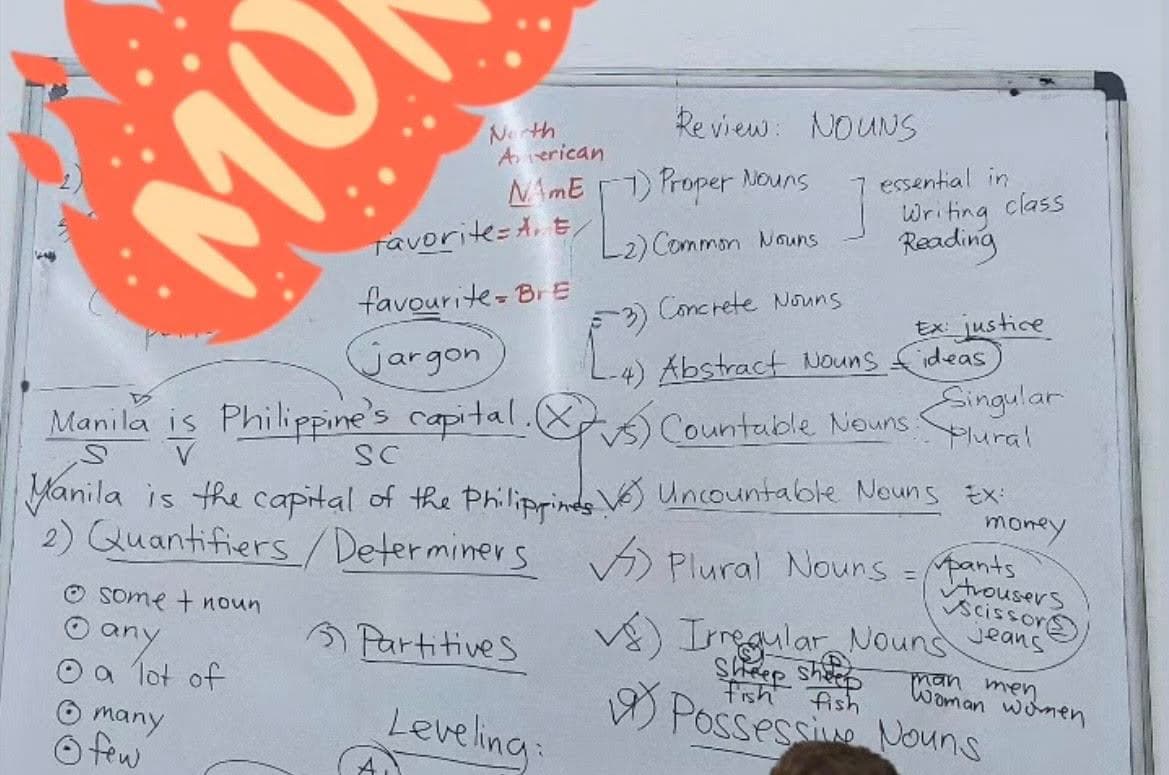 MON
North
American
NAmE
favorite = AmE
favourite = BrE
jargon
Manila is Philippine's capital. X
S V SC
Manila is the capital of the Philippines.
2) Quantifiers / Determiners
some + noun
any
a lot of
many
few
3) Partitives
Leveling:
A.
Review: NOUNS
1) Proper Nouns
2) Common Nouns
essential in
Writing class
Reading
3) Concrete Nouns
4) Abstract Nouns = ideas
Ex: justice
5) Countable Nouns:
Singular
Plural
6) Uncountable Nouns Ex:
money
7) Plural Nouns =
pants
trousers
scissors
jeans
8) Irregular Nouns
S P
sheep sheep man men
fish fish woman women
9) Possessive Nouns